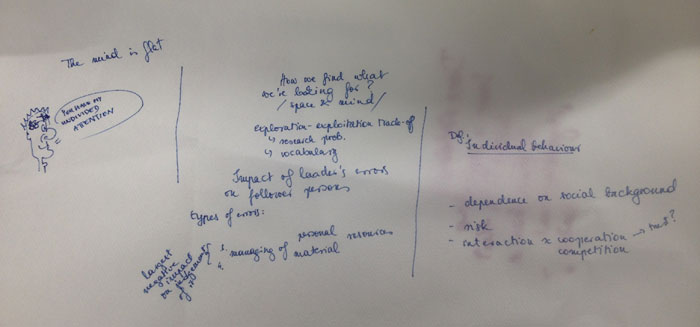 The mind is flat
YOU HAVE MY
UNDIVIDED
ATTENTION
How we find what
we're looking for?
/space x mind/
exploration-exploitation trade-of
↳ research prob.
↳ vocabulary
Impact of leader's errors
on follower persons
types of errors:
3. personal resources
4. managing of material
largest
negative
impact
on judgement
of
Def: Individual behaviour
- dependence on social background
- risk
- interaction x cooperation →
competition